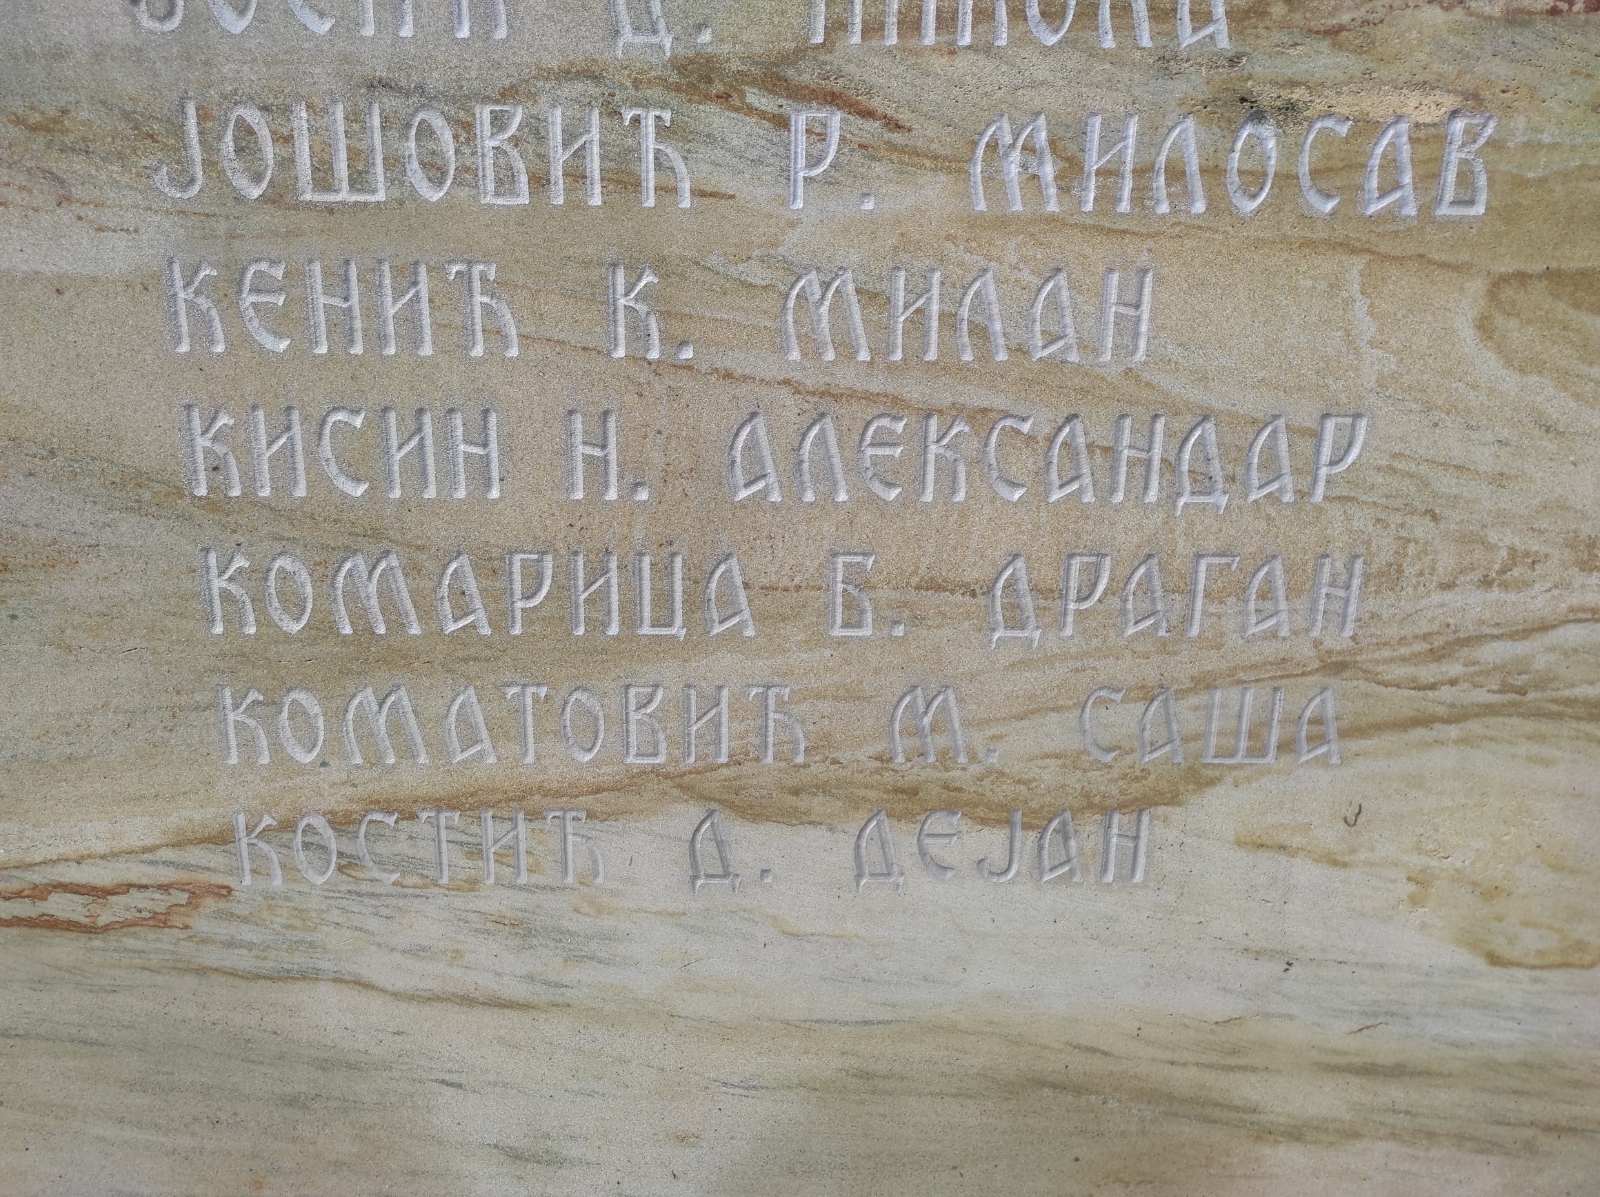 Д.
ЈОШОВИЋ Р. МИЛОСАВ
КЕНИЋ К. МИЛАН
КИСИН Н. АЛЕКСАНДАР
КОМАРИЦА Б. ДРАГАН
КОМАТОВИЋ М. САША
КОСТИЋ Д. ДЕЈАН